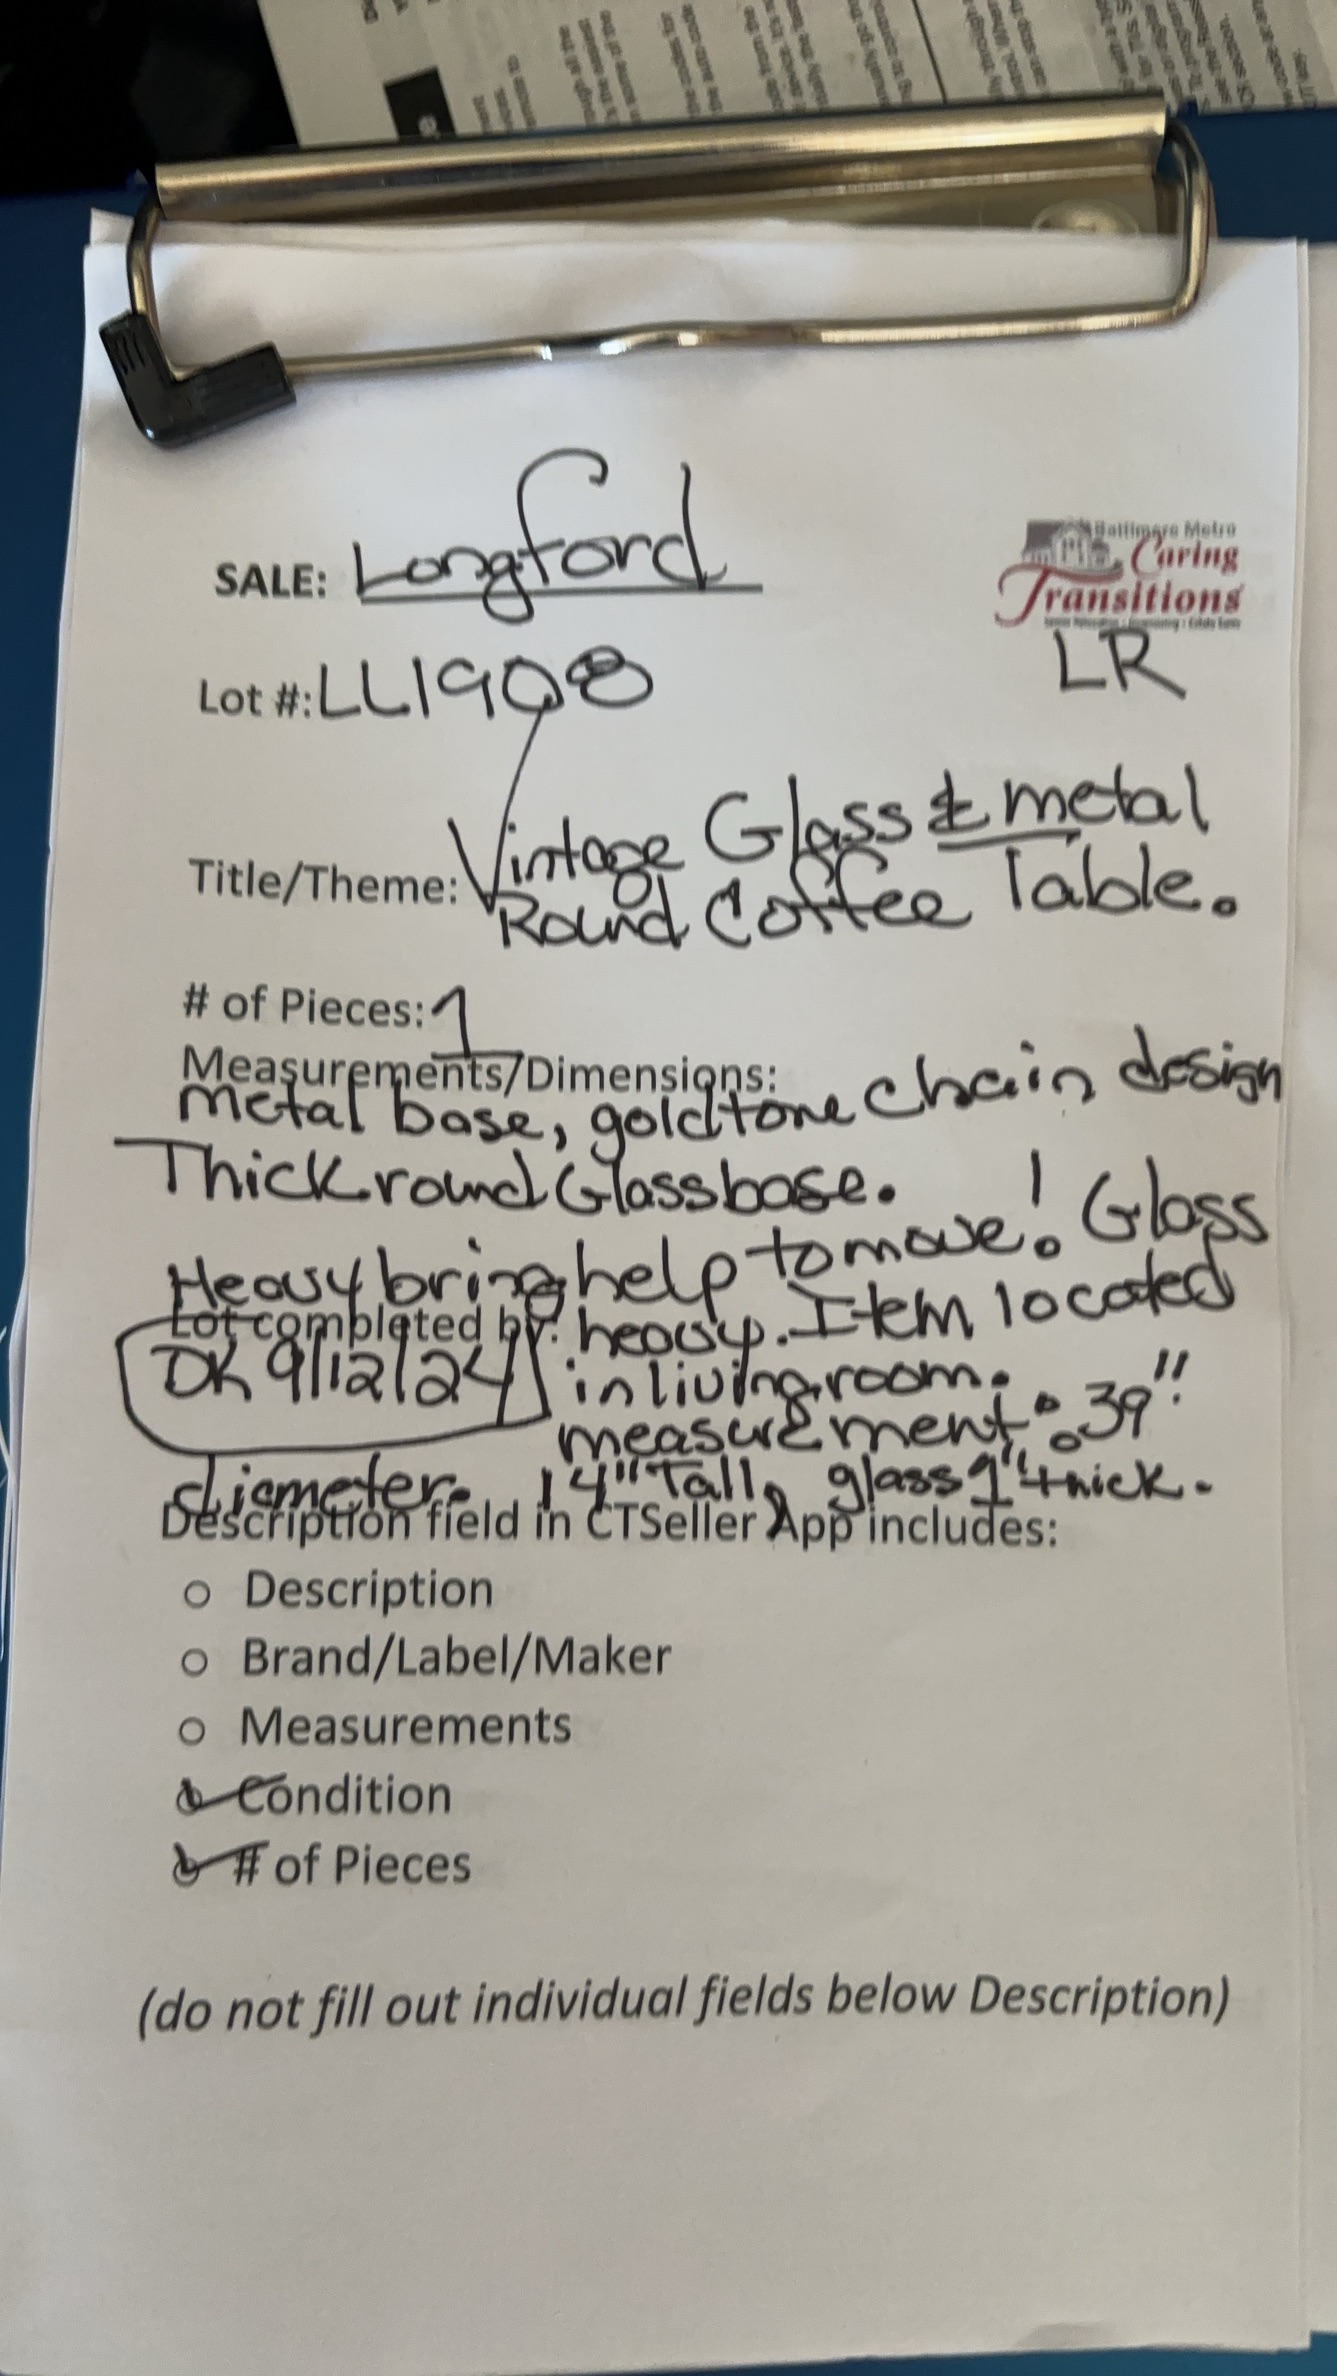 SALE: Longford
Baltimore Metro
Caring
Transitions
Lot #: LL1908
LR
Title/Theme: Vintage Glass & metal
Round Coffee Table.
# of Pieces: 1
Measurements/Dimensions:
metal base, goldtone chain design
Thick round Glass base.
Heavy bring help to move! Glass
Lot completed by: heavy. Item located
DK 9/12/24 in living room.
measurement: 39"
diameter. 14" Tall, glass 1" thick.
Description field in CTSeller App includes:
○ Description
○ Brand/Label/Maker
○ Measurements
○ Condition
○ # of Pieces
(do not fill out individual fields below Description)